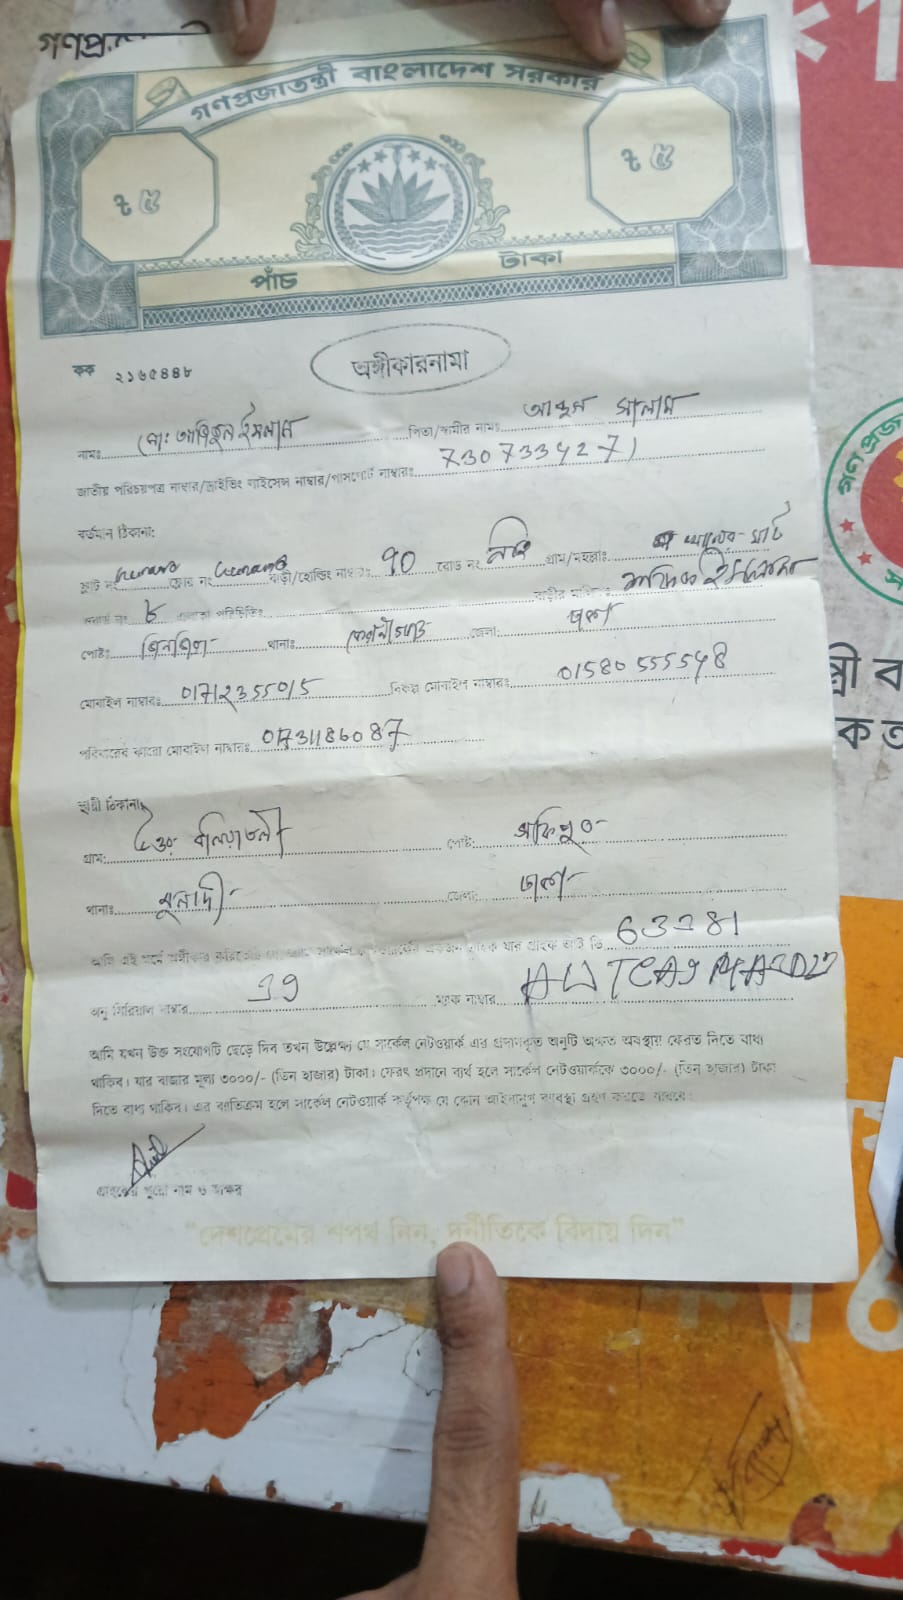 গণপ্র
গণপ্রজাতন্ত্রী বাংলাদেশ সরকার
৳ ৫ ৳ ৫
পাঁচ টাকা
কক ২১৬৫৪৪৮
অঙ্গীকারনামা
নামঃ মোঃ আরিফুল ইসলাম পিতা/স্বামীর নামঃ আব্দুস সালাম
জাতীয় পরিচয়পত্র নাম্বার/ড্রাইভিং লাইসেন্স নাম্বার/পাসপোর্ট নাম্বারঃ 7307334271
বর্তমান ঠিকানা:
ফ্লাট নং ফ্লোর নং বাড়ী/হোল্ডিং নাম্বারঃ 90 রোড নং নাই গ্রাম/মহল্লাঃ ঘাট
ওয়ার্ড নং ৮ এলাকা পরিচিতিঃ বাড়ীর মালিক ইসলাম
পোষ্ট: জিনজিরা থানাঃ কেরানীগঞ্জ জেলা: ঢাকা
মোবাইল নাম্বারঃ 01712355015 বিকল্প মোবাইল নাম্বারঃ 01580555548
পরিবারের কারো মোবাইল নাম্বারঃ 01731186087
স্থায়ী ঠিকানাঃ
গ্রাম: পোষ্ট:
থানাঃ মুলাদী জেলা:
আমি এই মর্মে অঙ্গীকার করিতেছি যে আমি সার্কেল নেটওয়ার্কের একজন গ্রাহক যার গ্রাহক আই ডি
অনু সিরিয়াল নাম্বার 19 ম্যাক নাম্বার
আমি যখন উক্ত সংযোগটি ছেড়ে দিব তখন উল্লেক্ষ্য যে সার্কেল নেটওয়ার্ক এর প্রদানকৃত অনুটি অক্ষত অবস্থায় ফেরত দিতে বাধ্য
থাকিব। যার বাজার মূল্য ৩০০০/- (তিন হাজার) টাকা। ফেরৎ প্রদানে ব্যর্থ হলে সার্কেল নেটওয়ার্ককে ৩০০০/- (তিন হাজার) টাকা
দিতে বাধ্য থাকিব। এর ব্যতিক্রম হলে সার্কেল নেটওয়ার্ক কর্তৃপক্ষ যে কোন আইনানুগ ব্যবস্থা গ্রহণ করতে পারবে।
গ্রাহকের পুরো নাম ও স্বাক্ষর
"দেশপ্রেমের শপথ নিন, দুর্নীতিকে বিদায় দিন"